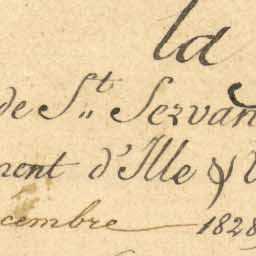 la
de St. Servan
ment d'Ille &
écembre 1828